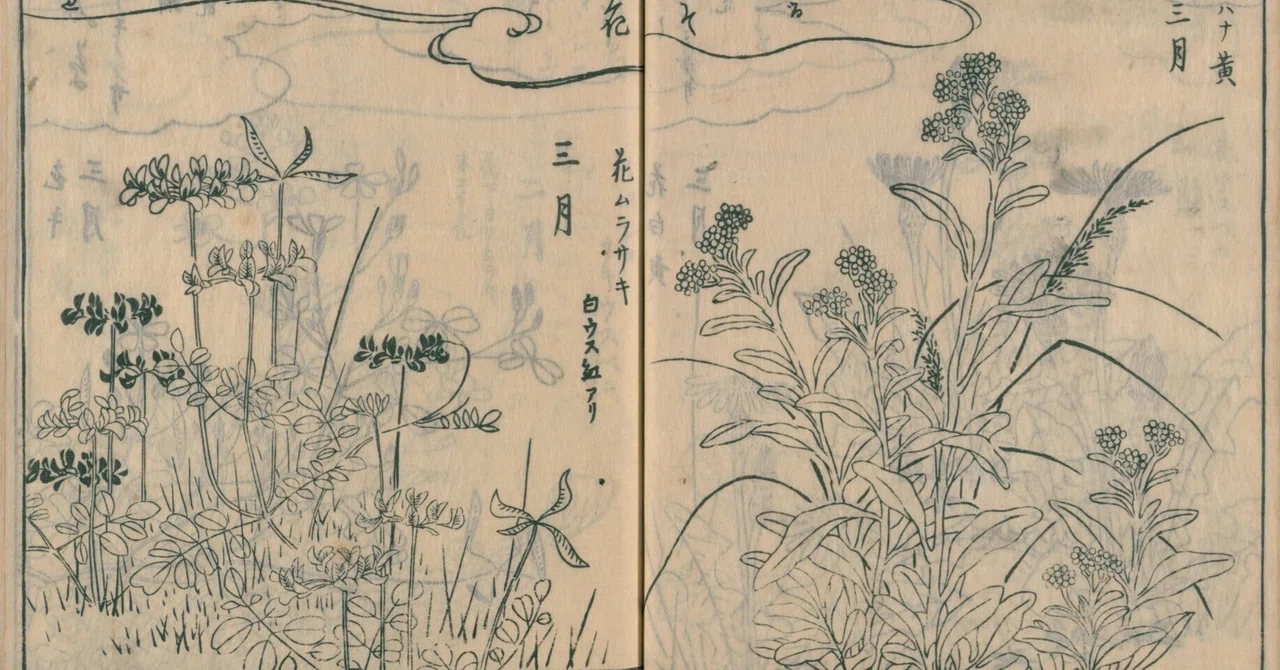 ハナ黄
三月
そ
花
花ムラサキ
白ウス紅アリ
三月